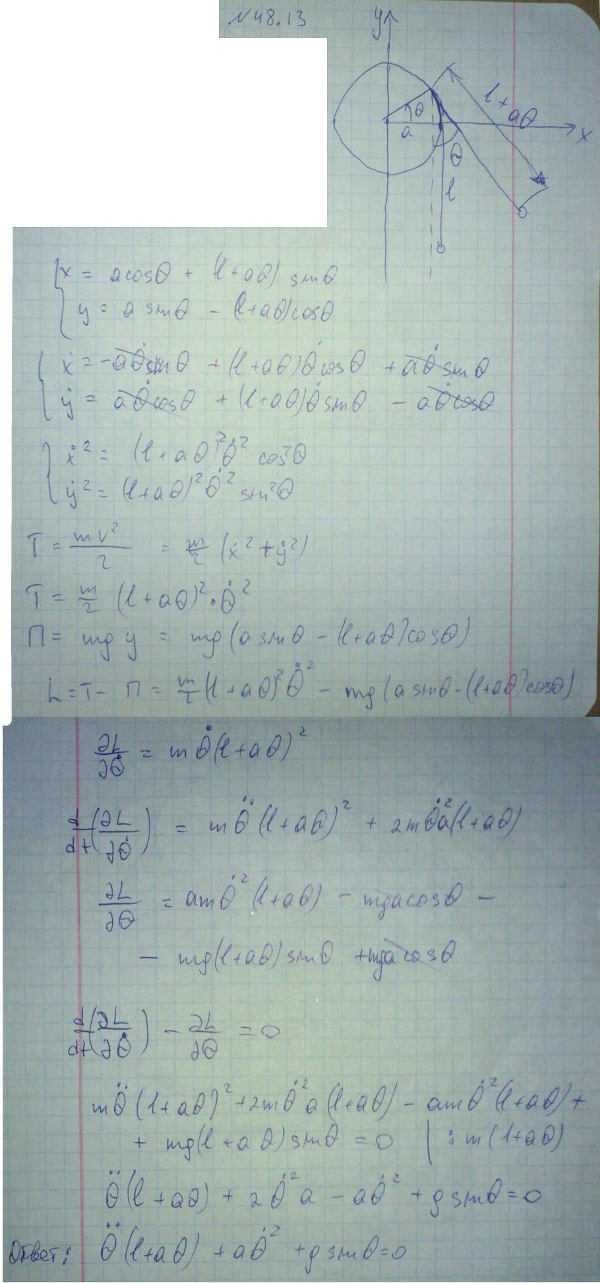 N48.13
y
θ
a
x
l + aθ
θ
l
x = a cosθ + (l+aθ) sinθ
y = a sinθ - (l+aθ)cosθ
ẋ = -aθ̇sinθ + (l+aθ)θ̇cosθ + aθ̇sinθ
ẏ = aθ̇cosθ + (l+aθ)θ̇sinθ - aθ̇cosθ
ẋ² = (l+aθ)²θ̇² cos²θ
ẏ² = (l+aθ)²θ̇² sin²θ
T = mv²/2 = m/2 (ẋ²+ẏ²)
T = m/2 (l+aθ)²·θ̇²
П = mg y = mg(a sinθ - (l+aθ)cosθ)
L = T - П = m/2 (l+aθ)²θ̇² - mg(a sinθ-(l+aθ)cosθ)
∂L/∂θ̇ = mθ̇(l+aθ)²
d/dt(∂L/∂θ̇) = mθ̈(l+aθ)² + 2mθ̇²a(l+aθ)
∂L/∂θ = amθ̇²(l+aθ) - mgacosθ -
- mg(l+aθ)sinθ + mgacosθ
d/dt(∂L/∂θ̇) - ∂L/∂θ = 0
mθ̈(l+aθ)²+2mθ̇²a(l+aθ) - amθ̇²(l+aθ)+
+ mg(l+aθ)sinθ = 0 | : m(l+aθ)
θ̈(l+aθ) + 2θ̇²a - aθ̇² + g sinθ = 0
Ответ: θ̈(l+aθ) + aθ̇² + g sinθ=0